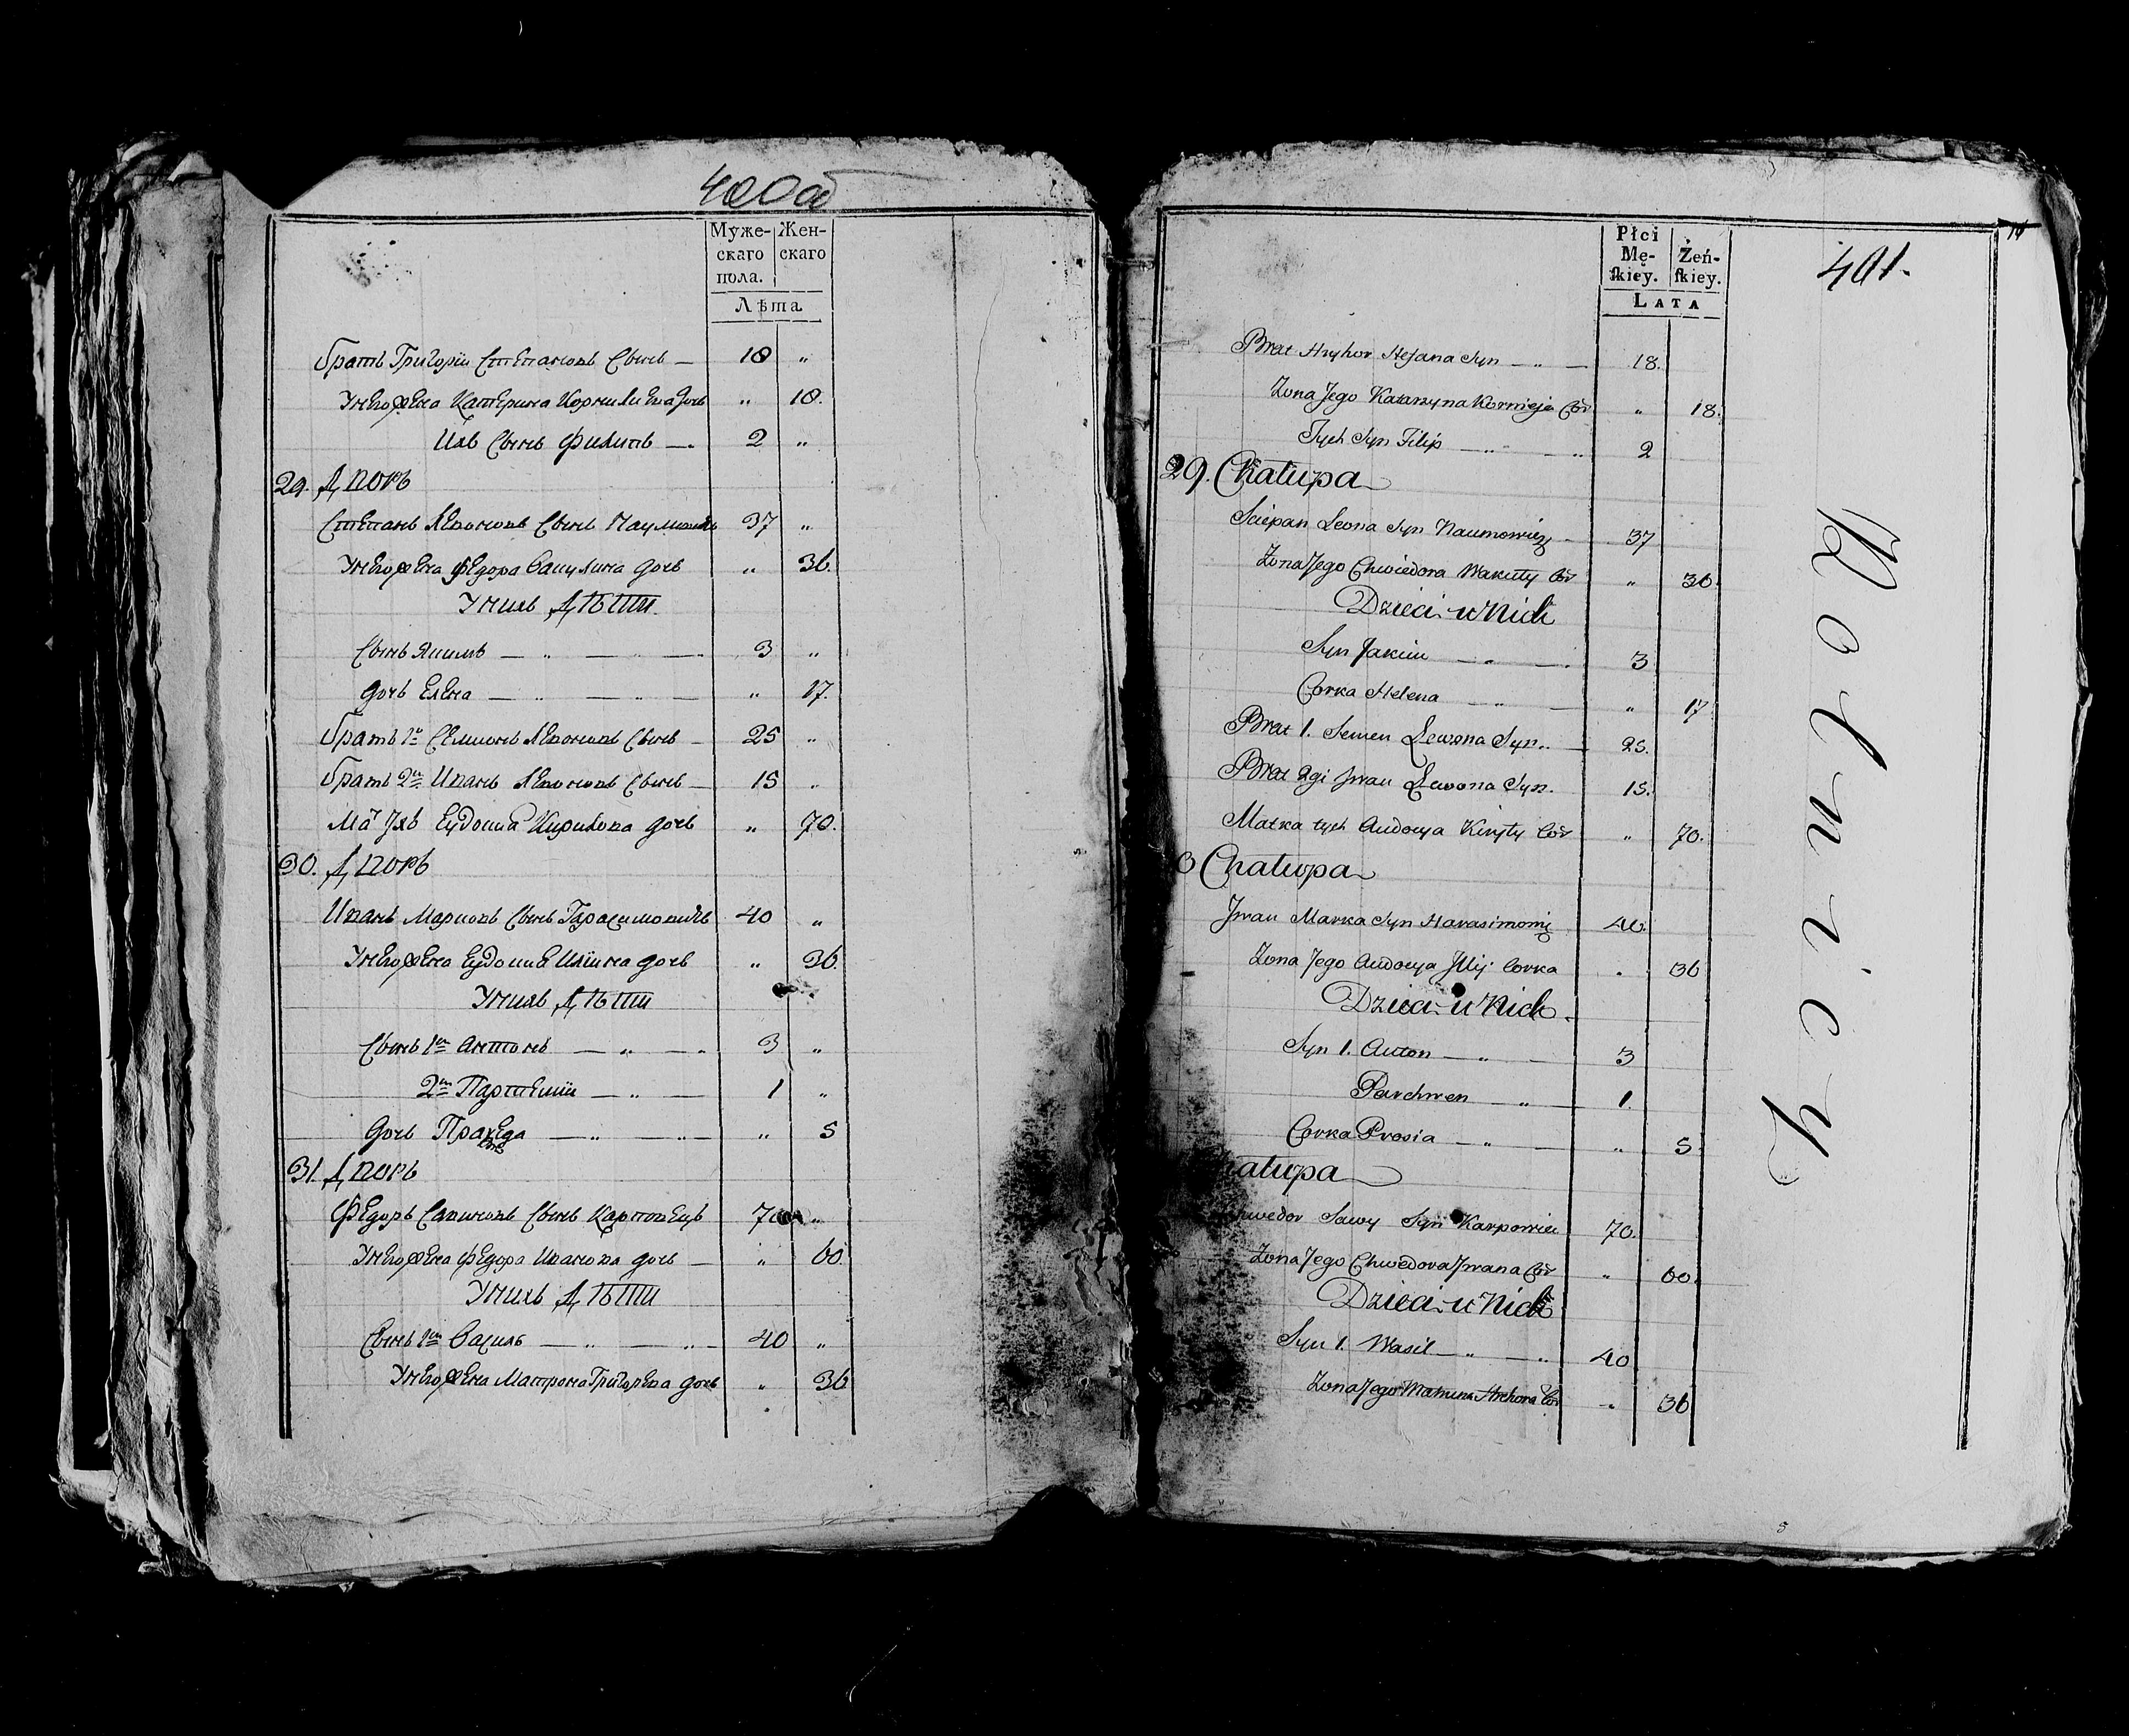 400об
Муже- Жен-
скаго скаго
пола.
Лѣта
братъ Григорій Степановъ Сынъ — 18 „
У него жена Катерина Корнилиева дочь „ 18.
Ихъ Сынъ Филипъ — 2 „
29. Дворъ
Степанъ Левоновъ Сынъ Наумовичь 37 „
У него жена Федора Вакулина дочь „ 36.
У нихъ Дѣти
Сынъ Якимъ — „ — „ — 3 „
дочь Елена — „ — „ — „ 17.
братъ 1й Семионъ Левоновъ Сынъ — 25 „
братъ 2й Иванъ Левоновъ Сынъ — 15 „
Мать Ихъ Еудокия Кирилова дочь „ 70.
30. Дворъ
Иванъ Марковъ Сынъ Гарасимовичъ 40 „
У него жена Еудокия Илїина дочь „ 36.
У нихъ Дѣти
Сынъ 1й Антонъ — „ — „ 3 „
2й Партемій — „ — 1 „
дочь — „ — „ — „ 5
31. Дворъ
Федоръ Савиновъ Сынъ Карповецъ 70 „
У него жена Федора Иванова дочь — „ 60.
У нихъ Дѣти
Сынъ 1й Василь — „ — „ — 40 „
У него жена Матрона Григорева дочь „ 36
14
401.
Płci Żeń-
Mę- skiey.
skiey.
LATA
Brat Hryhor Stefana Syn — „ — 18.
Zona Jego Katarzyna Kornieja Cór „ 18.
Tych Syn Filip — „ — „ 2
29. Chałupa
Sciepan Leona Syn Naumowicz — 37
Zona Jego Chwiedora Wakuły Cór „ 36.
Dzieci u Nich
Syn Jakim — „ — . 3
Corka Helena — „ — „ 17
Brat 1. Semen Lewona Syn „ — 25.
Brat 2gi Jwan Lewona Syn. 15.
Matka tych Audocya Kiryły Cór „ 70.
0 Chałupa
Jwan Marka Syn Harasimowi 40.
Zona Jego Audocya Jllij Corka „ 36
Dzieci u Nich
Syn 1. Anton — „ — 3
Parchwen — „ — 1.
Corka Prosia — „ — „ 5.
hałupa
hwedor Sawy Syn Karpowiec 70.
Zona Jego Chwedora Jwana Cór „ 60.
Dzieci u Nich
Syn 1. Wasil — „ — „ 40
Zona Jego Hrehora Cór „ 36
Wolnicy